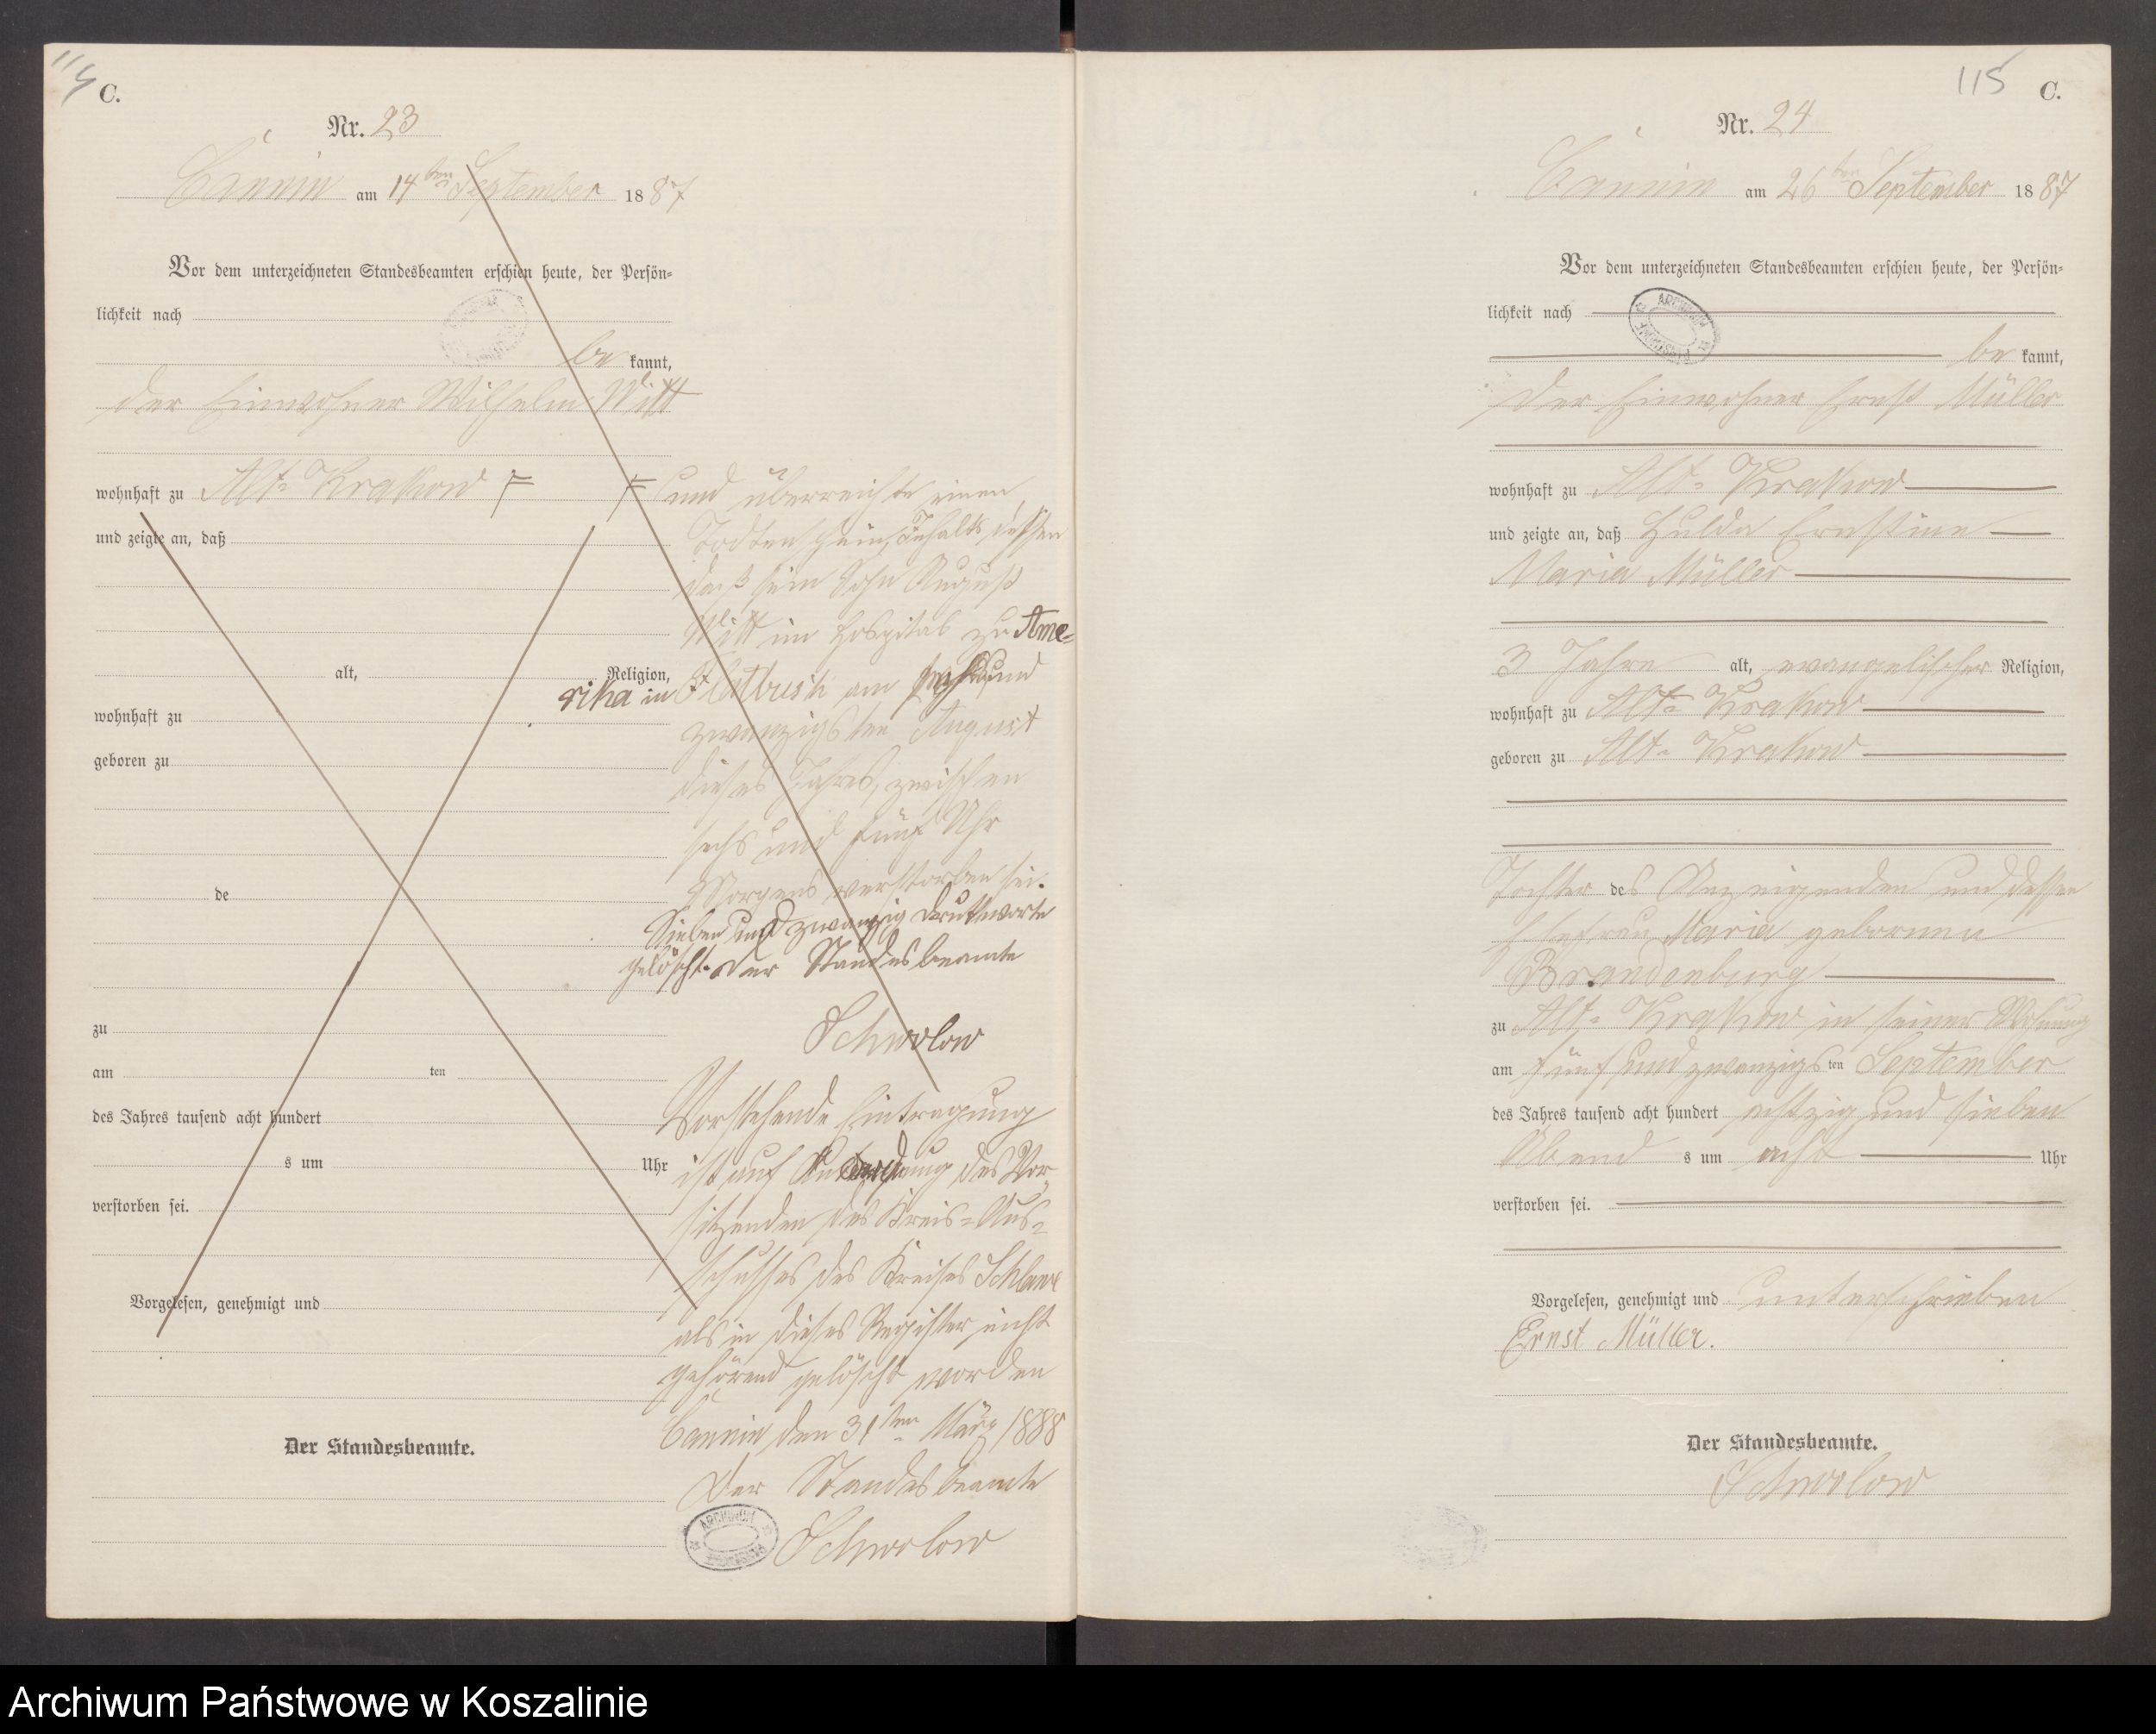 114
C.
Nr. 23
Cannin am 14ten September 1887
Vor dem unterzeichneten Standesbeamten erschien heute, der Persön-
lichkeit nach
be kannt,
der Einwohner Wilhelm Witt
wohnhaft zu Alt-Krakow
und zeigte an, daß
alt, Religion,
wohnhaft zu
geboren zu
de
zu
am ten
des Jahres tausend acht hundert
s um Uhr
verstorben sei.
Vorgelesen, genehmigt und
Der Standesbeamte.
und überreichte einen
Todtenschein, Inhalts dessen
daß sein Sohn August
Witt im Hospital zu Ame-
rika in Flatbush am und
zwanzigsten August
dieses Jahres, zwischen
sechs und fünf Uhr
Morgens verstorben sei.
Sieben und zwanzig Druckworte
gelöscht. Der Standesbeamte
Schwolow
Vorstehende Eintragung
ist auf Anordnung des Vor-
sitzenden des Kreis-Aus-
schusses des Kreises Schlawe
als in dieses Register nicht
gehörend gelöscht worden
Cannin den 31ten März 1888
Der Standesbeamte
Schwolow
115
C.
Nr. 24
Cannin am 26ten September 1887
Vor dem unterzeichneten Standesbeamten erschien heute, der Persön-
lichkeit nach
be kannt,
Der Einwohner Ernst Müller
wohnhaft zu Alt-Krakow
und zeigte an, daß Hulda Ernstine
Maria Müller
3 Jahre alt, evangelischer Religion,
wohnhaft zu Alt-Krakow
geboren zu Alt-Krakow
Tochter des Anzeigenden und dessen
Ehefrau Maria geborenen
Brandenburg
zu Alt-Krakow in seiner Wohnung
am fünf und zwanzigsten September
des Jahres tausend acht hundert achtzig und sieben
Abend s um acht Uhr
verstorben sei.
Vorgelesen, genehmigt und unterschrieben
Ernst Müller.
Der Standesbeamte.
Schwolow
Archiwum Państwowe w Koszalinie